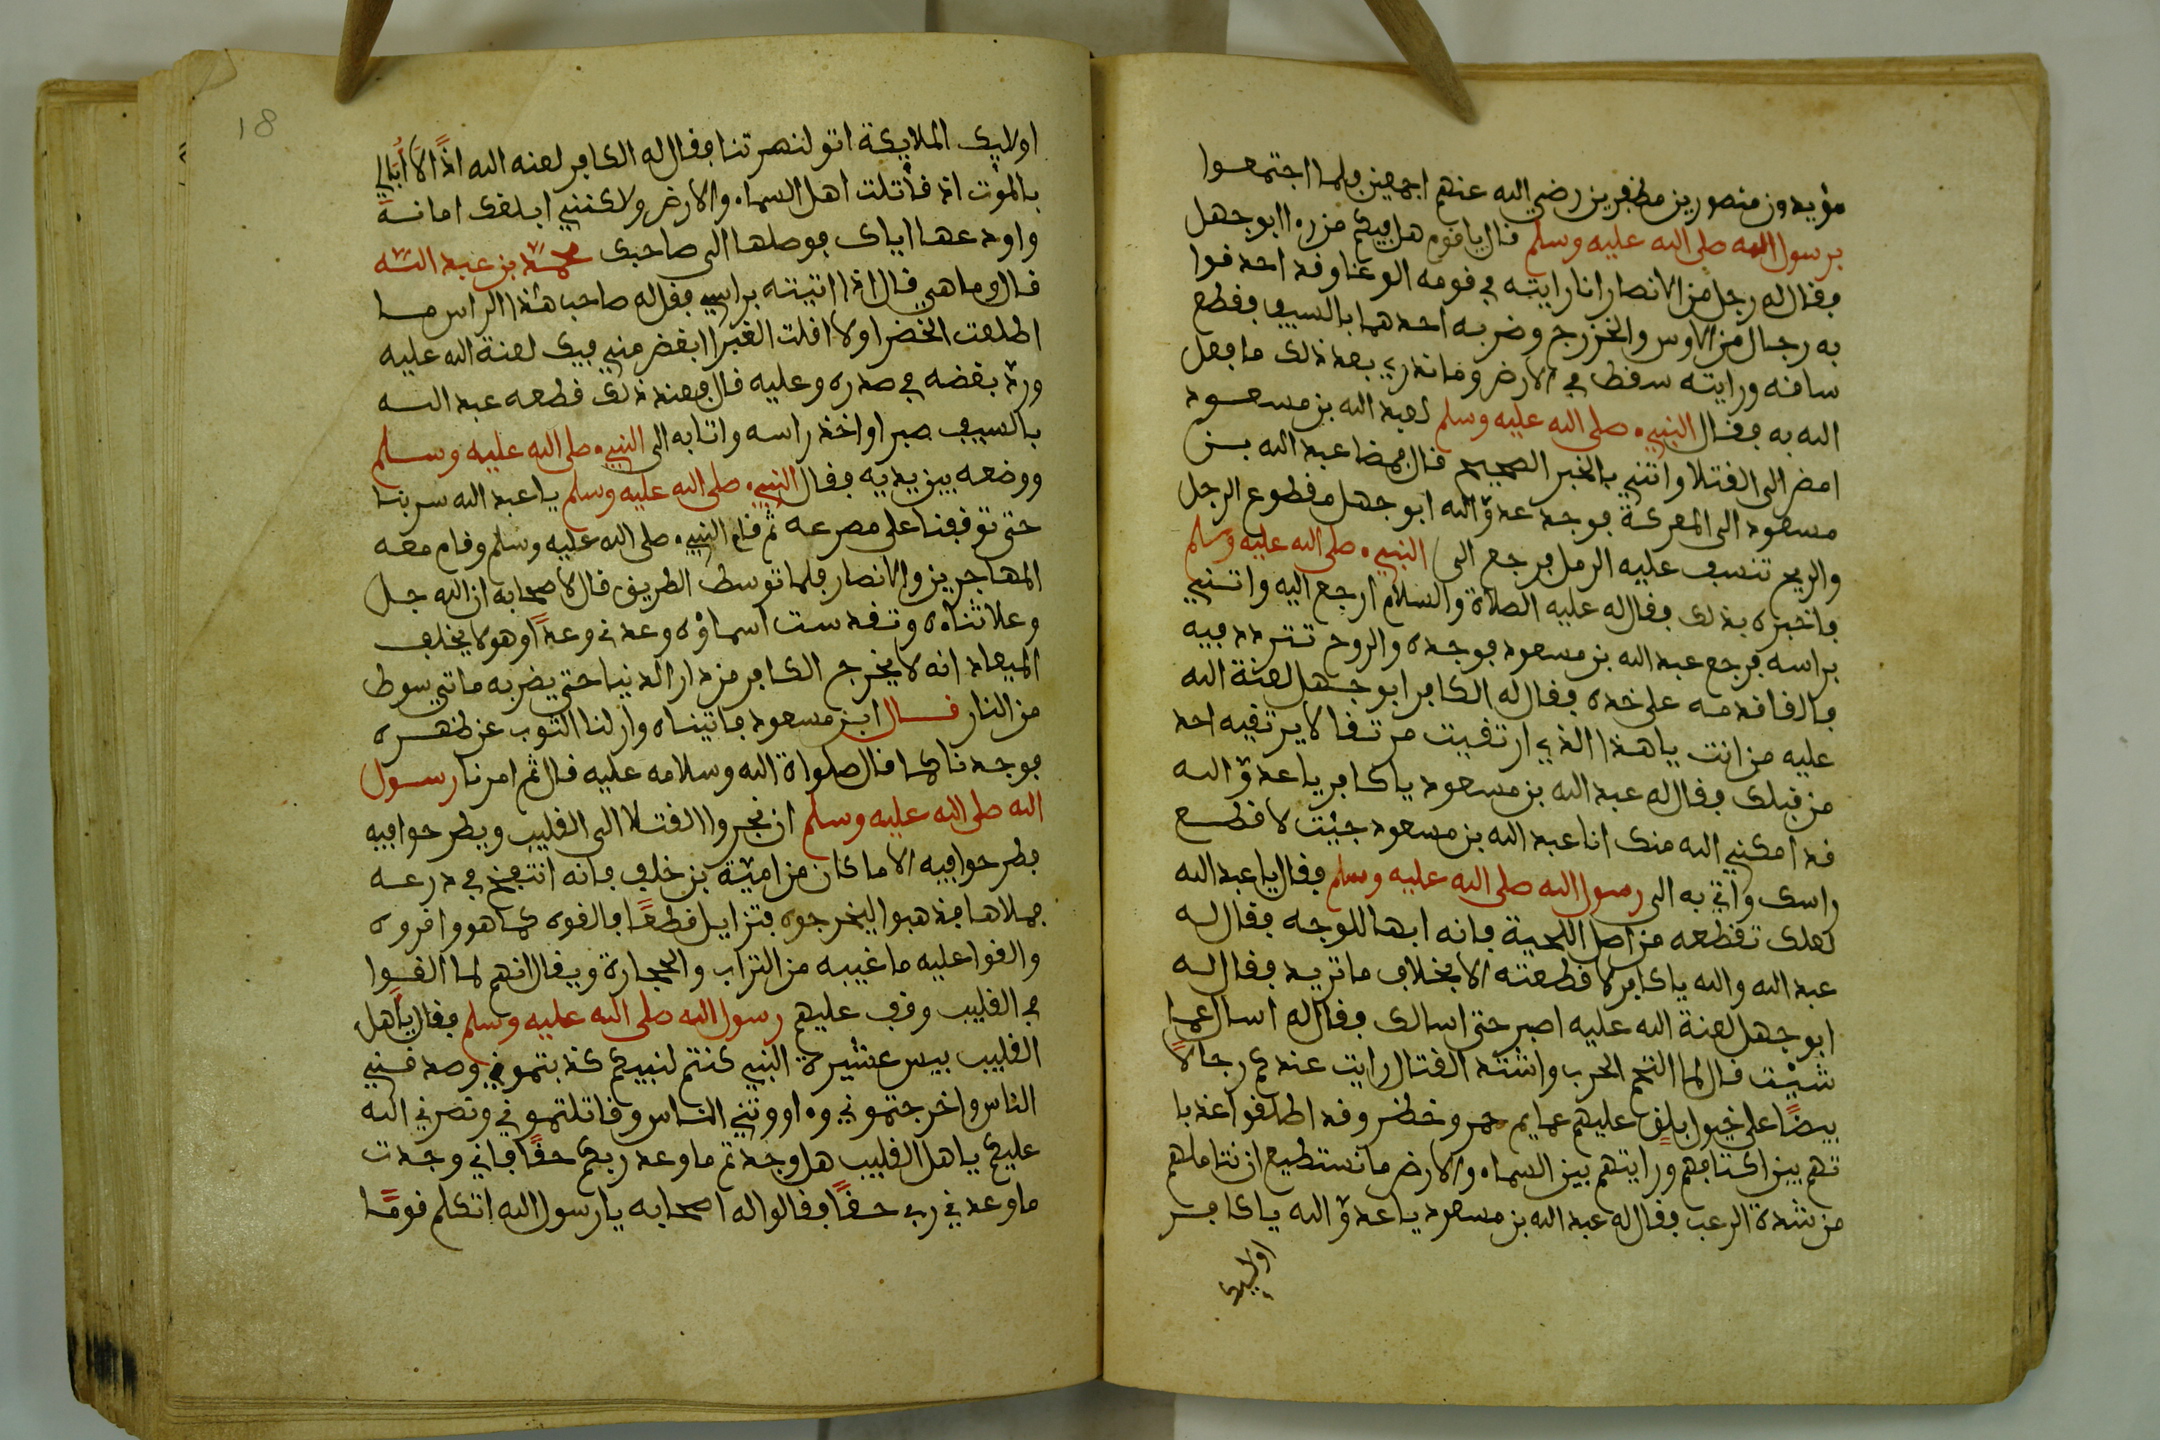 مؤيدون منصورين مظفرين رضي الله عنهم اجمعين فلما اجتمعوا
برسول الله صلى الله عليه وسلم قال يا قوم هل فيكم من را ابو جهل
فقال له رجل من الانصار انا رايته في قومه الوغا وقد احدقوا
به رجال من الاوس والخزرج وضربه احدهما بالسيف فقطع
ساقه ورايته سقط في الارض وما ندري بعد ذلك ما فعل
الله به فقال النبيء صلى الله عليه وسلم لعبد الله بن مسعود
امض الى القتلا واتني بالخبر الصحيح قال فمضا عبد الله بن
مسعود الى المعركة فوجد عدوّ الله ابو جهل مقطوع الرجل
والريح تنسف عليه الرمل فرجع الى النبيء صلى الله عليه وسلم
فاخبره بذلك فقال له عليه الصلاة والسلام ارجع اليه واتني
براسه فرجع عبد الله بن مسعود فوجده والروح تتردد فيه
فالقا قدمه على خده فقال له الكافر ابو جهل لعنة الله
عليه من انت يا هذا الذي ارتقيت مرتقا لا يرتقيه احد
من قبلك فقال له عبد الله بن مسعود يا كافر يا عدوّ الله
قد امكنني الله منك انا عبد الله بن مسعود جيئت لاقطع
راسك واتي به الى رسول الله صلى الله عليه وسلم فقال يا عبد الله
لعلك تقطعه من اصل اللحية فانه ابها للوجه فقال له
عبد الله والله يا كافر لا قطعته الا بخلاف ما تريد فقال له
ابو جهل لعنة الله عليه اصبر حتى اسالك فقال له اسال عما
شيئت قال لما التحم الحرب واشتد القتال رايت عندكم رجالاً
بيضاً على خيول بلق عليهم عمايم حمر وخضر وقد اطلقوا عذبا
تهم بين اكتافهم ورايتهم بين السماء والارض ما نستطيع ان نتاملهم
من شدة الرعب فقال له عبد الله بن مسعود يا عدوّ الله يا كافر
اوليك
18
اوليك الملايكة اتو لنصرتنا فقال له الكافر لعنه الله اذاً لا أبالي
بالموت اذ قأتلت اهل السماء والارض ولاكنني ابلغك امانة
واودعها اياك فوصلها الى صاحبك محمّد بن عبد الله
قال وما هي قال اذا اتيته براسي فقل له صاحب هذا الراس ما
اطلعت الخضرا ولا اقلت الغبرا ابغض مني فيك لعنة الله عليه
وردّ بغضه في صدره وعليه قال فعند ذلك قطعه عبد الله
بالسيف صبرا واخذ راسه واتا به الى النبيء صلى الله عليه وسلم
ووضعه بين يديه فقال النبيء صلى الله عليه وسلم يا عبد الله سر بنا
حتى توقفنا على مصرعه ثم قام النبيء صلى الله عليه وسلم وقام معه
المهاجرين والانصار فلما توسط الطريق قال لاصحابه ان الله جل
وعلا ثناؤه وتقدست اسماؤه وعدني وعداً وهو لا يخلف
الميعاد انه لا يخرج الكافر من دار الدنيا حتى يضربه ماتي سوط
من النار قال ابن مسعود فاتيناه وازلنا الثوب عن ظهره
فوجدناه كما قال صلواة الله وسلامه عليه قال ثم امرنا رسول
الله صلى الله عليه وسلم ان نجروا القتلا الى القليب ويطرحوا فيه
فطرحوا فيه الا ما كان من اميّة بن خلف فانه انتفخ في درعه
فملاها فذهبوا ليخرجوه فتزايل قطعاً فالقوه كما هو واقروه
والقوا عليه ما غيبه من التراب والحجارة ويقال انهم لما القوا
في القليب وقف عليهم رسول الله صلى الله عليه وسلم فقال يأهل
القليب بيس عشيرة النبي كنتم لنبيكم كذبتموني وصدقني
الناس واخرجتموني وءاوونني الناس وقاتلتموني ونصرني الله
عليكم ياهل القليب هل وجدتم ما وعد ربكم حقاً فاني وجدت
ما وعدني ربي حقاً فقالوا له اصحابه يا رسول الله اتكلم قومًا